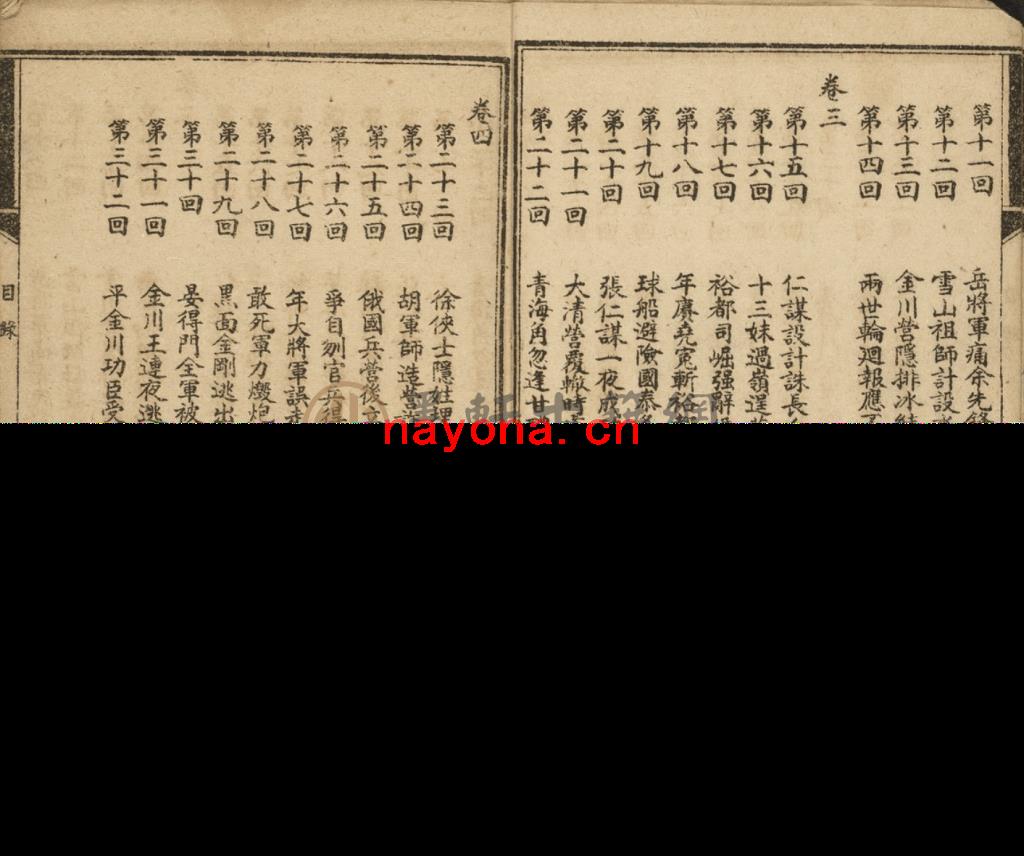 第十一回 岳將軍痛余先鋒
第十二回 雪山祖師計設
第十三回 金川營隱排冰
第十四回 兩世輪迴報應
卷三
第十五回 仁謀設計誅長
第十六回 十三妹過嶺逞
第十七回 裕都司崛强辭
第十八回 年賡堯寃斬裕
第十九回 球船避險國泰
第二十回 張仁謀一夜成
第二十一回 大清營覆轍時
第二十二回 青海角忽逢甘
卷四
第二十三回 徐俠士隱姓埋
第二十四回 胡軍師造營
第二十五回 俄國兵營後立
第二十六回 爭自刎官兵得
第二十七回 年大將軍誤走
第二十八回 敢死軍力燬炮
第二十九回 黑面金剛逃出
第三十回 晏得門全軍被
第三十一回 金川王連夜逃
第三十二回 平金川功臣受
目錄
nayona.cn